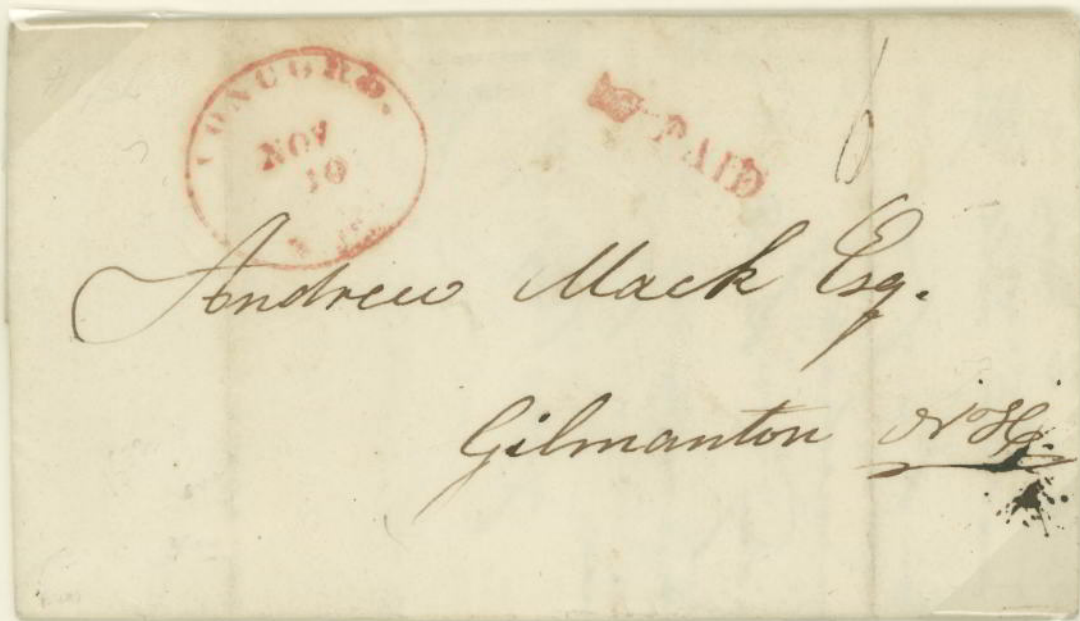 CONCORD.
NOV
10
PAID
6
Andrew Mack Esq.
Gilmanton N.H.